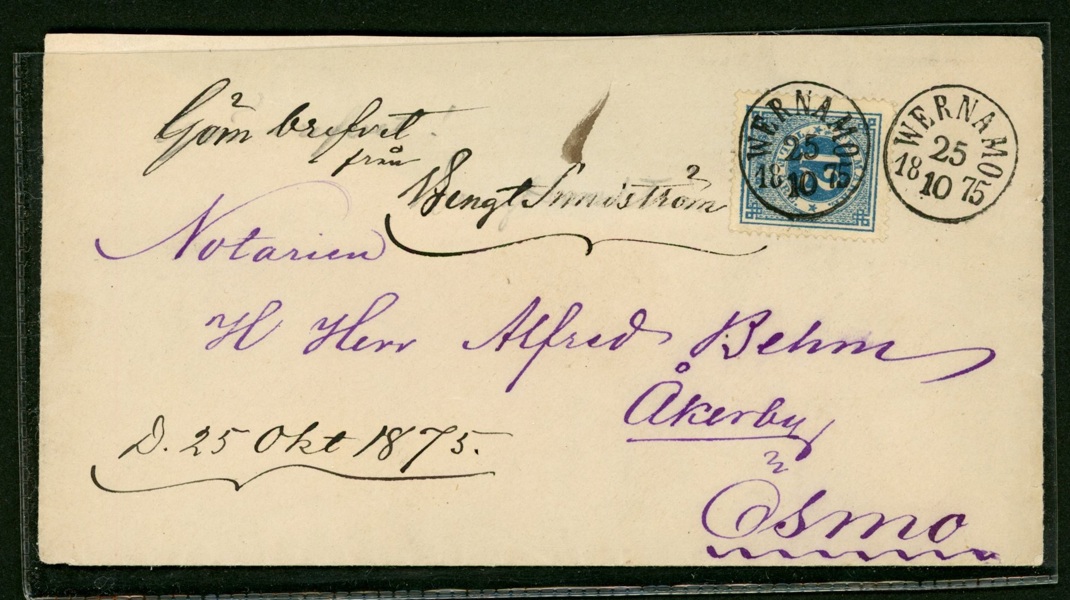 Göm brefvet
från
Bengt
Notarien
H Herr Alfred Behm
Åkerby
Ösmo
D. 25 Okt 1875.
WERNAMO
25
18 10 75
WERNAMO
25
18 10 75